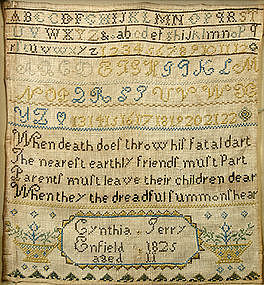 A B C D E F G H I J K L M N O P Q R S T
U V W X Y Z & a b c d e f g h i j k l m n o p q
r s t u v w x y z 1 2 3 4 5 6 7 8 9 10
A B C D E F G H I J K L M
N O P Q R S T U V W X
Y Z 13 14 15 16 17 18 19 20 21 22
When death doeſ throw hiſ fatal dart
The neareſt earthly friendſ muſt Part
Parentſ muſt leave their children dear
When they the dreadful ſummonſ hear
Cynthia Terry
Enfield 1825
aged 11